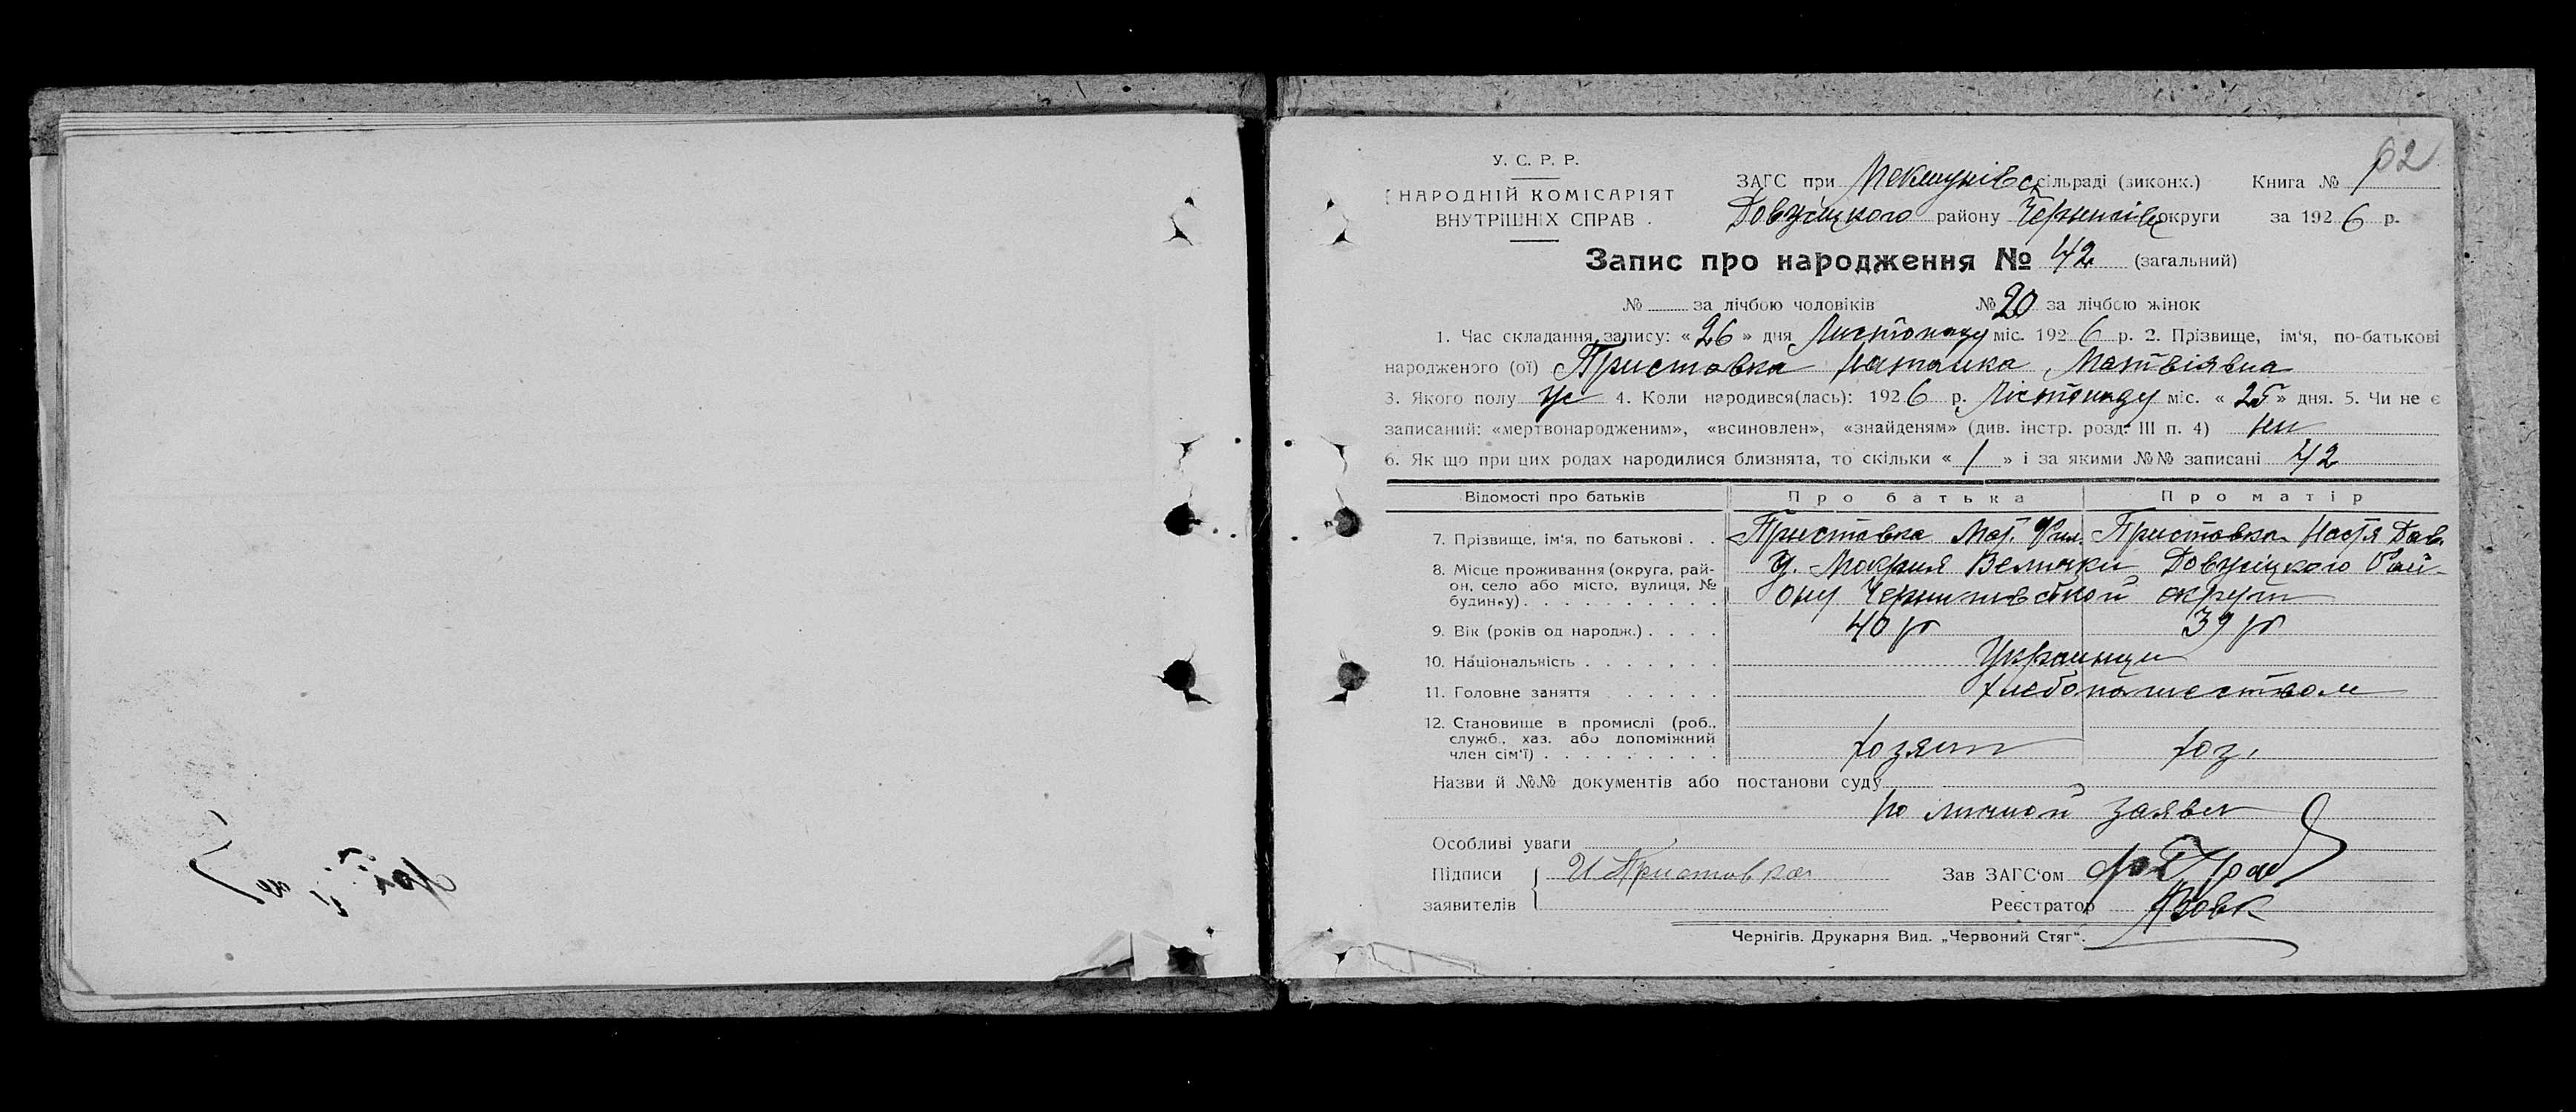 62
У. С. Р. Р.
НАРОДНІЙ КОМІСАРІЯТ
ВНУТРІШНІХ СПРАВ.
ЗАГС при сільраді (виконк.) Книга № 1
району Чернигівс округи за 1926 р.
Запис про народження № 42 (загальний)
№ за лічбою чоловіків № 20 за лічбою жінок
1. Час складання запису: «26» дня Листопаду міс. 1926 р. 2. Прізвище, ім'я, по-батькові
народженого (ої) Приставка Наталка Матвіявна
3. Якого полу ж 4. Коли народився(лась): 1926 р. Лістопаду міс. «25» дня. 5. Чи не є
записаний: «мертвонародженим», «всиновлен», «знайденям» (див. інстр. розд. III п. 4) ни
6. Як що при цих родах народилися близнята, то скільки «1» і за якими №№ записані 42
Відомості про батьків Про батька Про матір
7. Прізвище, ім'я, по батькові . . Приставка Мат. Фил. Приставка Настя Дав.
8. Місце проживання (округа, рай-
он, село або місто, вулиця, №
будинку) . . . . . . . . . .
Велички Рай-
ону Чернигивской округи
9. Вік (років од народж.) . . . . 40 р 39 р
10. Національність . . . . . . . Украинци
11. Головне заняття . . . . . хлебопашеством
12. Становище в промислі (роб.,
служб., хаз. або допоміжний
член сім'ї) . . . . . . . . . хозяин хоз.
Назви й №№ документів або постанови суду
по личной заяви
Особливі уваги
Підписи И Приставка Зав ЗАГС'ом
заявителів Реєстратор Вовк
Чернігів. Друкарня Вид. „Червоний Стяг".